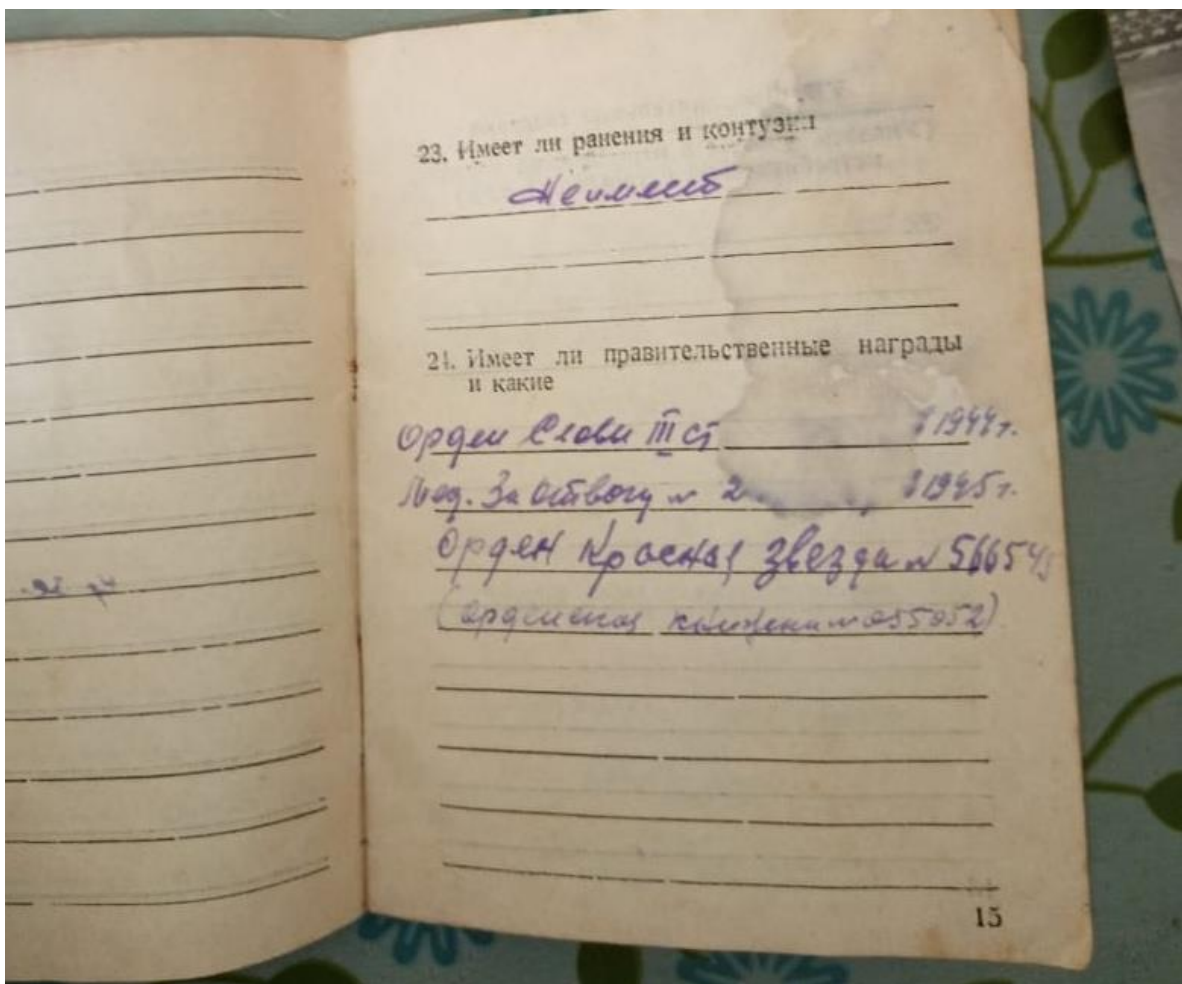 23. Имеет ли ранения и контузии
Не имеет
24. Имеет ли правительственные награды
и какие
Орден Славы III ст 1944 г.
Мед. За отвагу № 2 1945 г.
Орден Красная звезда № 566545
(орденская книжка № 055052)
15